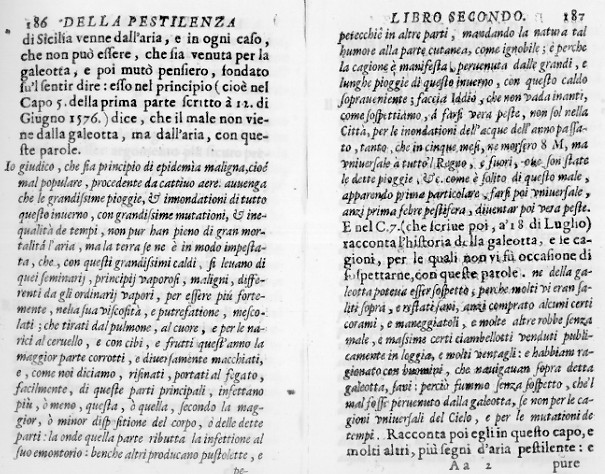 186 DELLA PESTILENZA
di Sicilia venne dall'aria, e in ogni caso,
che non può essere, che sia venuta per la
galeotta, e poi mutò pensiero, fondato
su'l sentir dire: esso nel principio (cioè nel
Capo 5. della prima parte scritto à 12. di
Giugno 1576.) dice, che il male non vie-
ne dalla galeotta, ma dall'aria, con que-
ste parole.
Io giudico, che sia principio di epidemia maligna, cioé
mal populare, procedente da cattiuo aere. auuenga
che le grandissime pioggie, & innondationi di tutto
questo inuerno, con grandissime mutationi, & ine-
qualità de tempi, non pur han pieno di gran mor-
talitá l'aria, ma la terra se ne è in modo impesta-
ta, che, con questi grandissimi caldi, si leuano di
quei seminarij, principij vaporosi, maligni, diffe-
renti da gli ordinarij vapori, per essere più forte-
mente, nella sua viscosità, e putrefatione, mesco-
lati; che tirati dal pulmone, al cuore, e per le na-
rici al ceruello, e con cibi, e frutti quest'anno la
maggior parte corrotti, e diuersamente macchiati,
e, come noi diciamo, risinati, portati al fegato,
facilmente, di queste parti principali, infettano
più, ò meno, questa, ò quella, secondo la mag-
gior, ò minor disposition del corpo, ò delle dette
parti: la onde quella parte ributta la infettione al
suo emontorio: benche altri producano pustolette, e
pe-
LIBRO SECONDO. 187
petecchie in altre parti, mandando la natura tal
humore alla parte cutanea, come ignobile; è perche
la cagione è manifesta, peruenuta dalle grandi, e
lunghe pioggie di questo inuerno, con questo caldo
soprauenente; faccia Iddio, che non vada inanti,
come sospettiamo, á farsi vera peste, non sol nella
Città, per le inondationi dell'acque dell'anno passa-
to, tanto, che in cinque mesi, ne morsero 8 M, ma
vniuersale à tutto'l Regno, e fuori, oue son state
le dette pioggie, &c. come è solito di questo male,
apparendo prima particolare, farsi poi vniuersale,
anzi prima febre pestifera, diuentar poi vera peste.
E nel C.7. (che scriue poi, a'18 di Luglio)
racconta l'historia della galeotta, e le ca-
gioni, per le quali non vi fù occasione di
sospettarne, con queste parole. ne della ga-
leotta poteua esser sospetto, perche molti vi eran sa-
liti sopra, e ristati sani, anzi comprato alcuni certi
corami, e maneggiatoli, e molte altre robbe senza
male, e massime certi ciambellotti venduti publi-
camente in loggia, e molti ventagli: e habbiam ra-
gionato con huomini, che nauigauan sopra detta
galeotta, sani: perciò fummo senza sospetto, che'l
mal fosse peruenuto dalla galeotta, se non per le ca-
gioni vniuersali del Cielo, e per le mutationi de
tempi. Racconta poi egli in questo capo, e
molti altri, più segni d'aria pestilente: e
Aa 2 pure